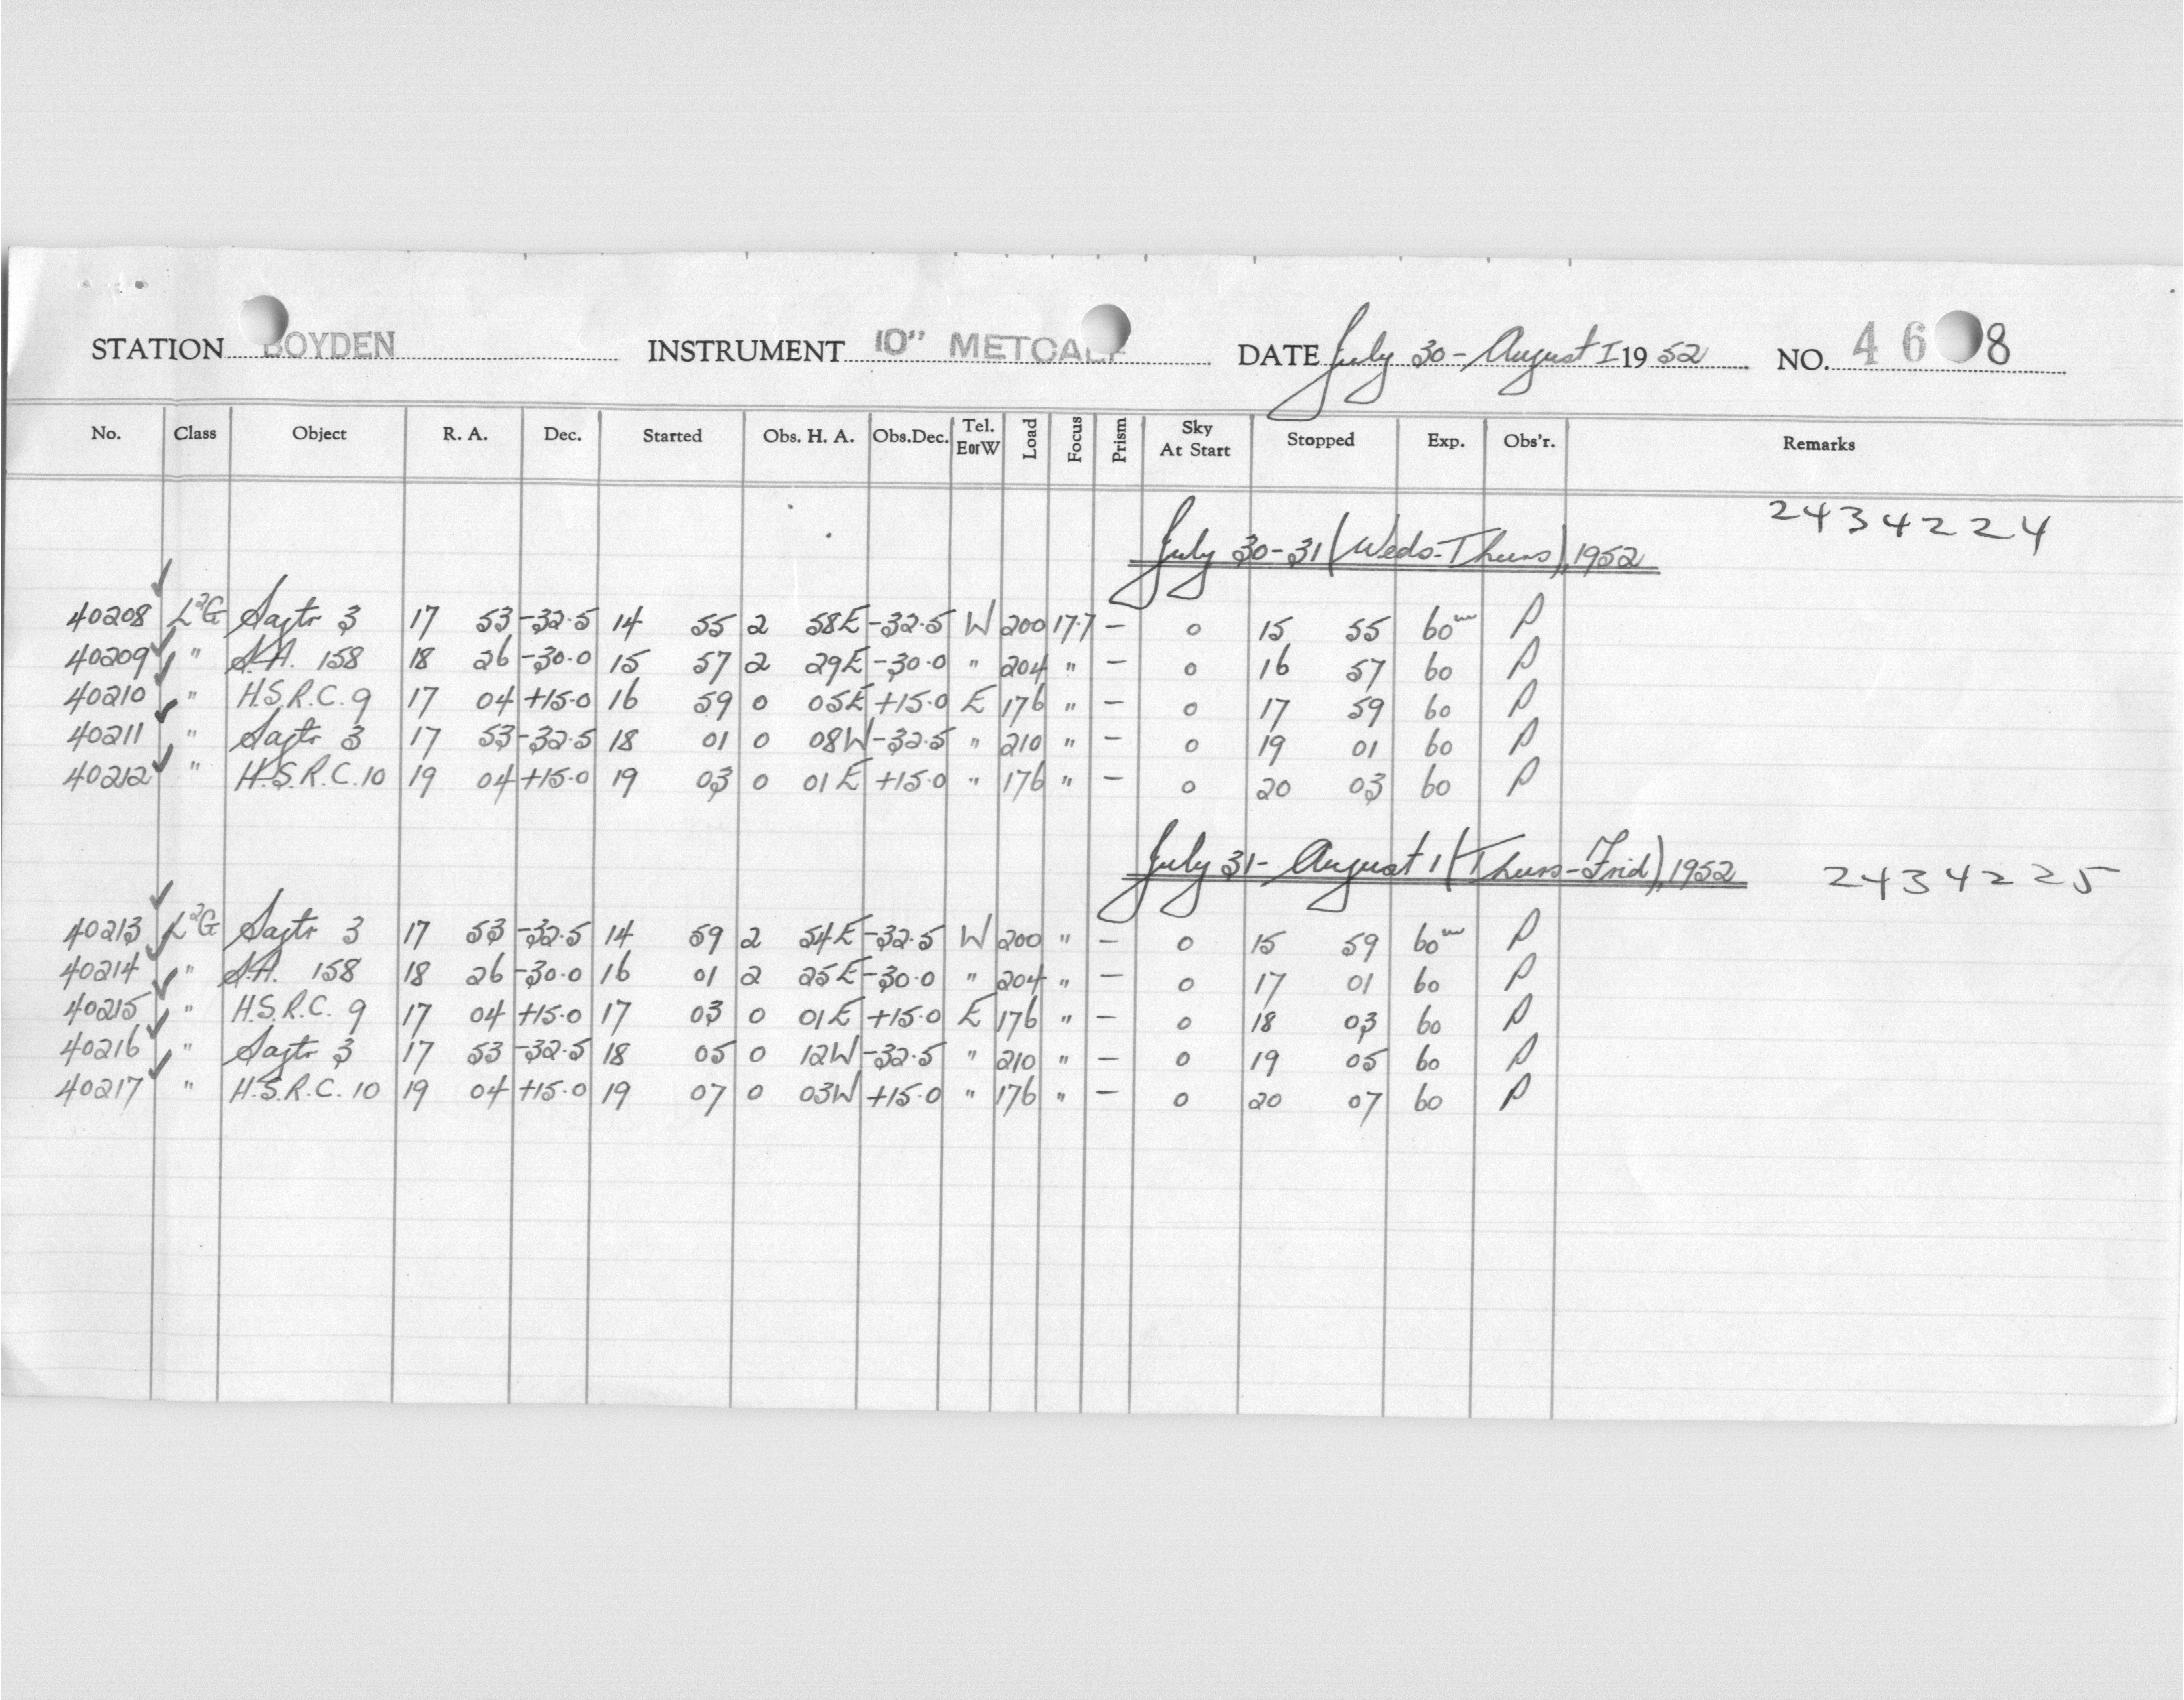 STATION BOYDEN INSTRUMENT 10" METCALF DATE July 30 - August 1 1952 NO. 46 8
No. Class Object R. A. Dec. Started Obs. H. A. Obs.Dec. Tel. EorW Load Focus Prism Sky At Start Stopped Exp. Obs'r. Remarks
2434224
July 30-31 (Weds-Thurs), 1952
40208 L²G Sagtr 3 17 53 -32.5 14 55 2 58E -32.5 W 200 17.7 — 0 15 55 60ᵐ P
40209 " S.A. 158 18 26 -30.0 15 57 2 29E -30.0 " 204 " — 0 16 57 60 P
40210 " H.S.R.C. 9 17 04 +15.0 16 59 0 05E +15.0 E 176 " — 0 17 59 60 P
40211 " Sagtr 3 17 53 -32.5 18 01 0 08W -32.5 " 210 " — 0 19 01 60 P
40212 " H.S.R.C. 10 19 04 +15.0 19 03 0 01E +15.0 " 176 " — 0 20 03 60 P
July 31 - August 1 (Thurs-Frid), 1952 2434225
40213 L²G Sagtr 3 17 53 -32.5 14 59 2 54E -32.5 W 200 " — 0 15 59 60ᵐ P
40214 " S.A. 158 18 26 -30.0 16 01 2 25E -30.0 " 204 " — 0 17 01 60 P
40215 " H.S.R.C. 9 17 04 +15.0 17 03 0 01E +15.0 E 176 " — 0 18 03 60 P
40216 " Sagtr 3 17 53 -32.5 18 05 0 12W -32.5 " 210 " — 0 19 05 60 P
40217 " H.S.R.C. 10 19 04 +15.0 19 07 0 03W +15.0 " 176 " — 0 20 07 60 P